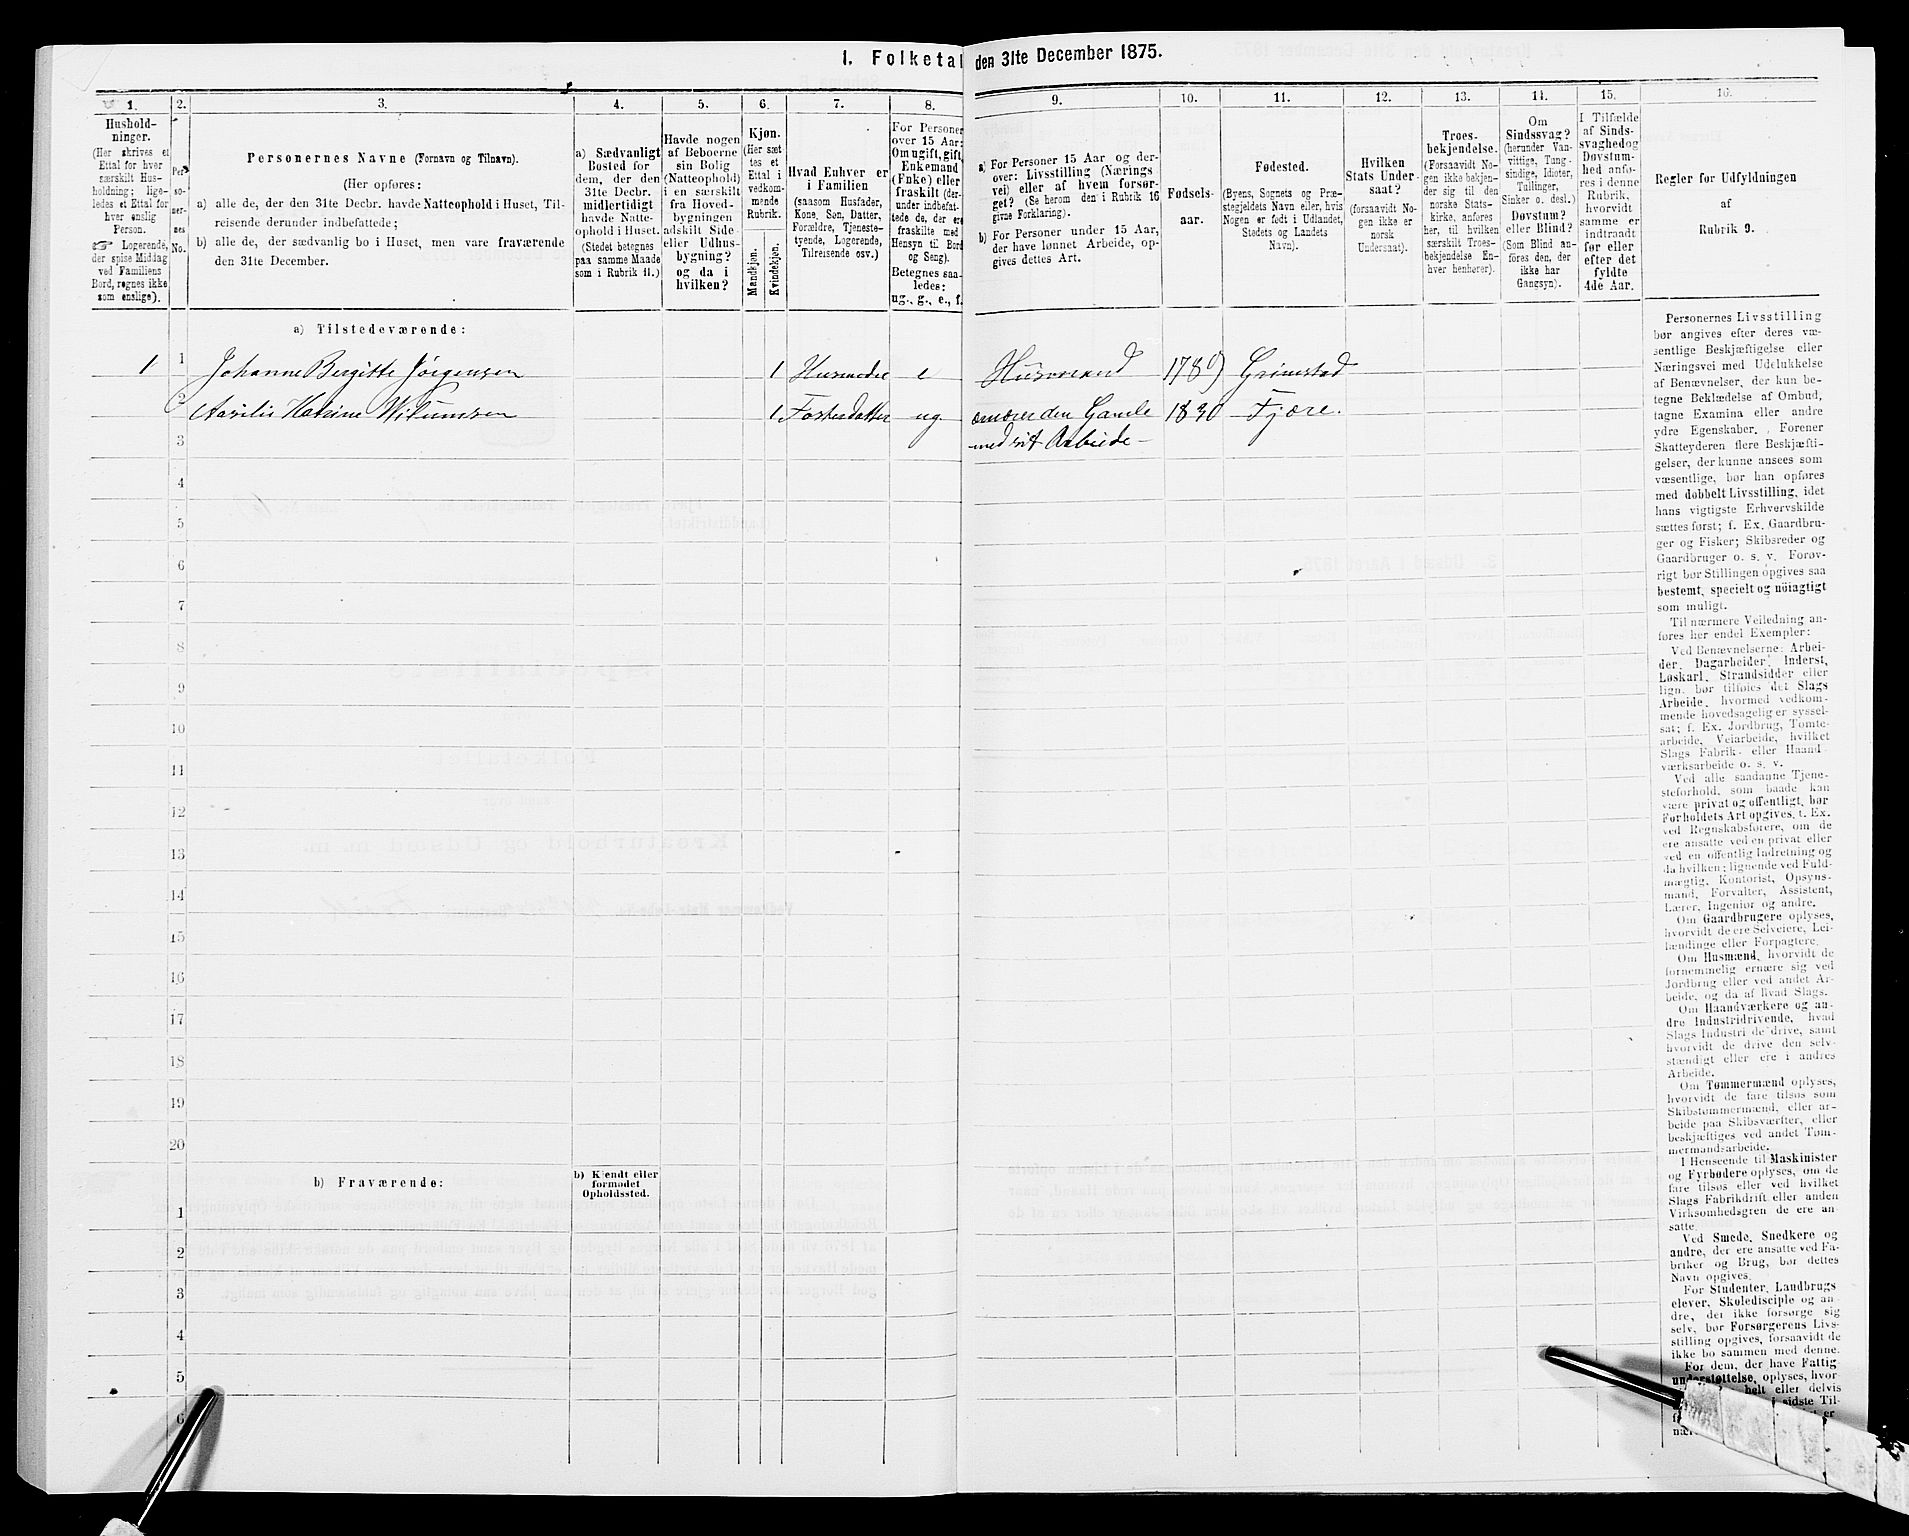 1. Folketal den 31te December 1875.
1. 2. 3. 4. 5. 6. 7. 8. 9. 10. 11. 12. 13. 14. 15. 16.
Hushold-
ninger.
(Her skrives et
Ettal for hver
særskilt Hus-
holdning; lige-
ledes et Ettal for
hver enslig
Person.
☞ Logerende,
der spise Middag
ved Familiens
Bord, regnes ikke
som enslige).
Per-
so-
ner-
nes
No.
Personernes Navne (Fornavn og Tilnavn).
(Her opføres:
a) alle de, der den 31te Decbr. havde Natteophold i Huset, Til-
reisende derunder indbefattede;
b) alle de, der sædvanlig bo i Huset, men vare fraværende
den 31te December.
a) Sædvanligt
Bosted for
dem, der den
31te Decbr.
midlertidigt
havde Natte-
ophold i Huset.
(Stedet betegnes
paa samme Maade
som i Rubrik 11.)
Havde nogen
af Beboerne
sin Bolig
(Natteophold)
i en særskilt
fra Hoved-
bygningen
adskilt Side-
eller Udhus-
bygning?
og da i
hvilken?
Kjøn.
(Her sæt-
tes et
Ettal i
vedkom-
mende
Rubrik.
Mandkjøn.
Kvindekjøn.
Hvad Enhver er
i Familien
(saasom Husfader,
Kone, Søn, Datter,
Forældre, Tjeneste-
tyende, Logerende,
Tilreisende osv.)
For Personer
over 15 Aar:
Om ugift, gift,
Enkemand
(Enke) eller
fraskilt (der-
under indbefat-
tede de, der ere
fraskilte med
Hensyn til Bord
og Seng).
Betegnes saa-
ledes:
ug., g., e., f.
a) For Personer 15 Aar og der-
over: Livsstilling (Nærings-
vei) eller af hvem forsør-
get? (Se herom den i Rubrik 16
givne Forklaring).
b) For Personer under 15 Aar,
der have lønnet Arbeide, op-
gives dettes Art.
Fødsels-
aar.
Fødested.
(Byens, Sognets og Præ-
stegjeldets Navn eller, hvis
Nogen er født i Udlandet,
Stedets og Landets
Navn).
Hvilken
Stats Under-
saat?
(forsaavidt No-
gen ikke er
norsk
Undersaat).
Troes-
bekjendelse.
(Forsaavidt No-
gen ikke bekjen-
der sig til den
norske Stats-
kirke, anføres
her, til hvilken
særskilt Troes-
bekjendelse En-
hver henhører).
Om
Sindssvag?
(herunder Van-
vittige, Tung-
sindige, Idioter,
Tullinger,
Sinker o. desl.)
Døvstum?
eller Blind?
(Som Blind an-
føres den, der
ikke har
Gangsyn).
I Tilfælde
af Sinds-
svaghed og
Døvstum-
hed anfø-
res i denne
Rubrik,
hvorvidt
samme er
indtraadt
før eller
efter det
fyldte
4de Aar.
Regler for Udfyldningen
af
Rubrik 9.
a) Tilstedeværende:
1 1 Johanne Bergitte Jörgensen 1 Husmoder e 178 Grimstad
2 Katrine 1 Fosterdatter ug. ernærer den Gamle 1830 Fjære.
3 med sit Arbeide
4
5
6
7
8
9
10
11
12
13
14
15
16
17
18
19
20
b) Fraværende:
b) Kjendt eller
formodet
Opholdssted.
1
2
3
4
5
6
Personernes Livsstilling
bør angives efter deres væ-
sentlige Beskjæftigelse eller
Næringsvei med Udelukkelse
af Benævnelser, der kun be-
tegne Beklædelse af Ombud,
tagne Examina eller andre
ydre Egenskaber. Forener
Skatteyderen flere Beskjæfti-
gelser, der kunne ansees som
væsentlige, bør han opføres
med dobbelt Livsstilling, idet
hans vigtigste Erhvervskilde
sættes først; f. Ex. Gaardbru-
ger og Fisker; Skibsreder og
Gaardbruger o. s. v. Forøv-
rigt bør Stillingen opgives saa
bestemt, specielt og nöiagtigt
som muligt.
Til nærmere Veiledning an-
føres her endel Exempler:
Ved Benævnelserne: Arbei-
der, Dagarbeider, Inderst,
Løskarl, Strandsidder eller
lign. bør tilføies det Slags
Arbeide, hvormed vedkom-
mende hovedsagelig er syssel-
sat; f. Ex. Jordbrug, Tomte-
arbeide, Veiarbeide, hvilket
Slags Fabrik- eller Haand-
værksarbeide o. s. v.
Ved alle saadanne Tjene-
steforhold, som baade kan
være privat og offentligt, bør
Forholdets Art opgives, f. Ex.
ved Regnskabsførere, om de
ere ansatte ved en privat eller
ved en offentlig Indretning og
da hvilken; lignende ved Fuld-
mægtig, Kontorist, Opsyns-
mand, Forvalter, Assistent,
Lærer, Ingeniør og andre.
Om Gaardbrugere oplyses,
hvorvidt de ere Selveiere, Lei-
lændinge eller Forpagtere.
Om Husmænd, hvorvidt de
fornemmelig ernære sig ved
Jordbrug eller ved andet Ar-
beide, og da af hvad Slags.
Om Haandværkere og an-
dre Industridrivende, hvad
Slags Industri de drive, samt
hvorvidt de drive den selv-
stændigt eller ere i andres
Arbeide.
Om Tømmermænd oplyses,
hvorvidt de fare tilsøs som
Skibstømmermænd, eller ar-
beide paa Skibsværfter, eller
beskjæftiges ved andet Tøm-
mermandsarbeide.
I Henseende til Maskinister
og Fyrbødere oplyses, om de
fare tilsøs eller ved hvilket
Slags Fabrikdrift eller anden
Virksomhedsgren de ere an-
satte.
Ved Smede, Snedkere og
andre, der ere ansatte ved Fa-
briker og Brug, bør dettes
Navn opgives.
For Studenter, Landbrugs-
elever, Skoledisciple og an-
dre, der ikke forsørge sig
selv, bør Forsørgerens Livs-
stilling opgives, forsaavidt de
ikke bo sammen med denne.
For dem, der have Fattig-
understøttelse, oplyses, hvor-
helt eller delvis
sidste Til-
er